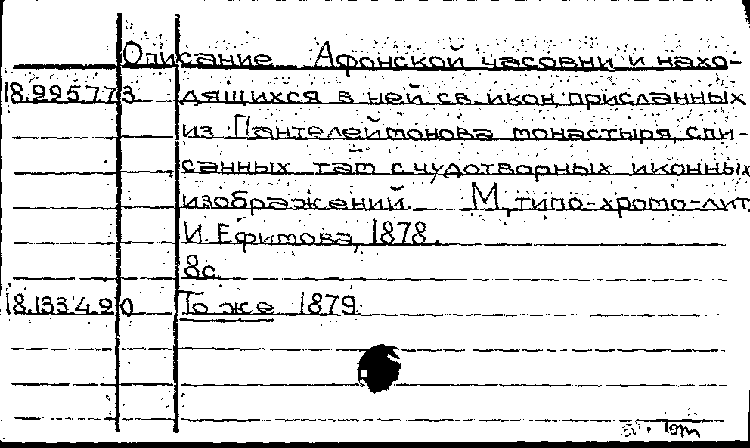 Описание Афонской часовни и нахо-
18.9957.73 дящихся в ней св. икон, присланных
из Пантелеймонова монастыря, спи-
санных там с чудотворных иконных
изображений. М, типо-хромо-лит.
И. Ефимова, 1878.
8с.
18.133.4.90 То же 1879.